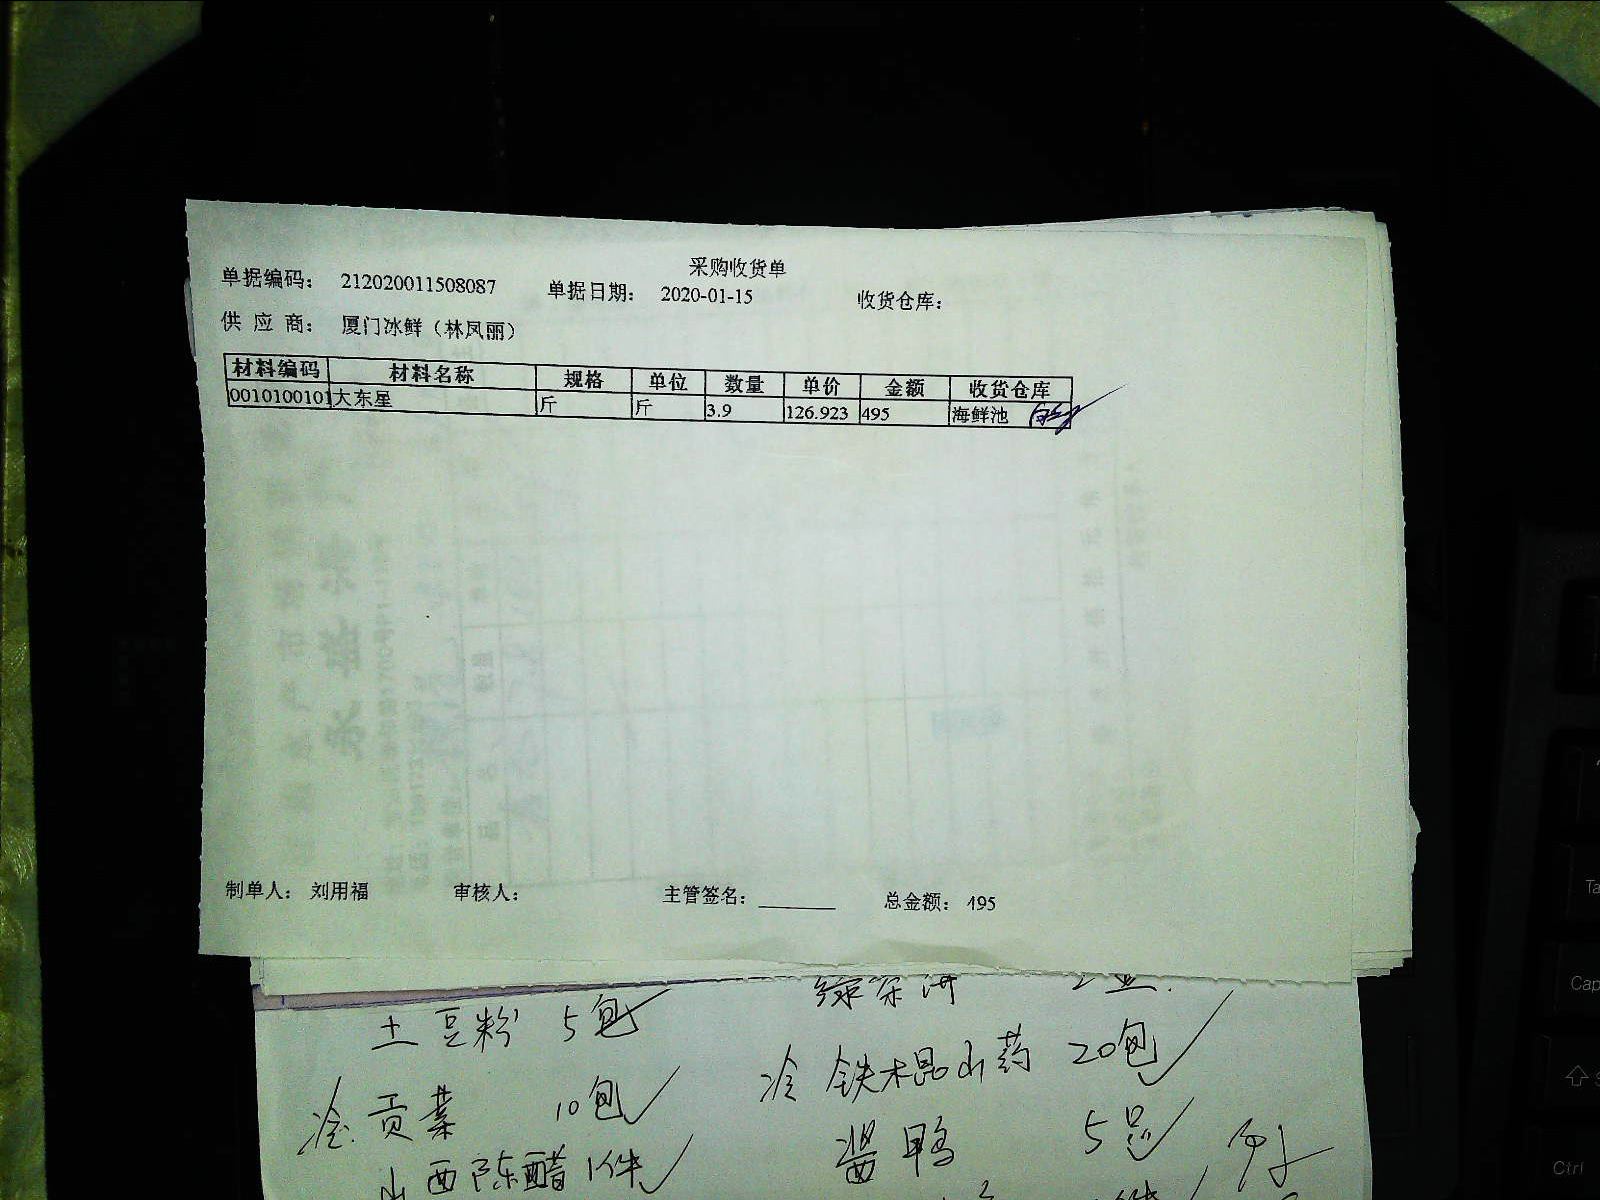 采购收货单
单据编码： 212020011508087 单据日期： 2020-01-15 收货仓库：
供 应 商： 厦门冰鲜（林凤丽）
材料编码 材料名称 规格 单位 数量 单价 金额 收货仓库
0010100101 大东星 斤 斤 3.9 126.923 495 海鲜池
制单人： 刘用福 审核人： 主管签名： 总金额： 495
土豆粉 5包
冷 铁木昆山药 20包
冷 贡菜 10包
酱鸭 5只
山西陈醋 1件
Cap
Ctrl